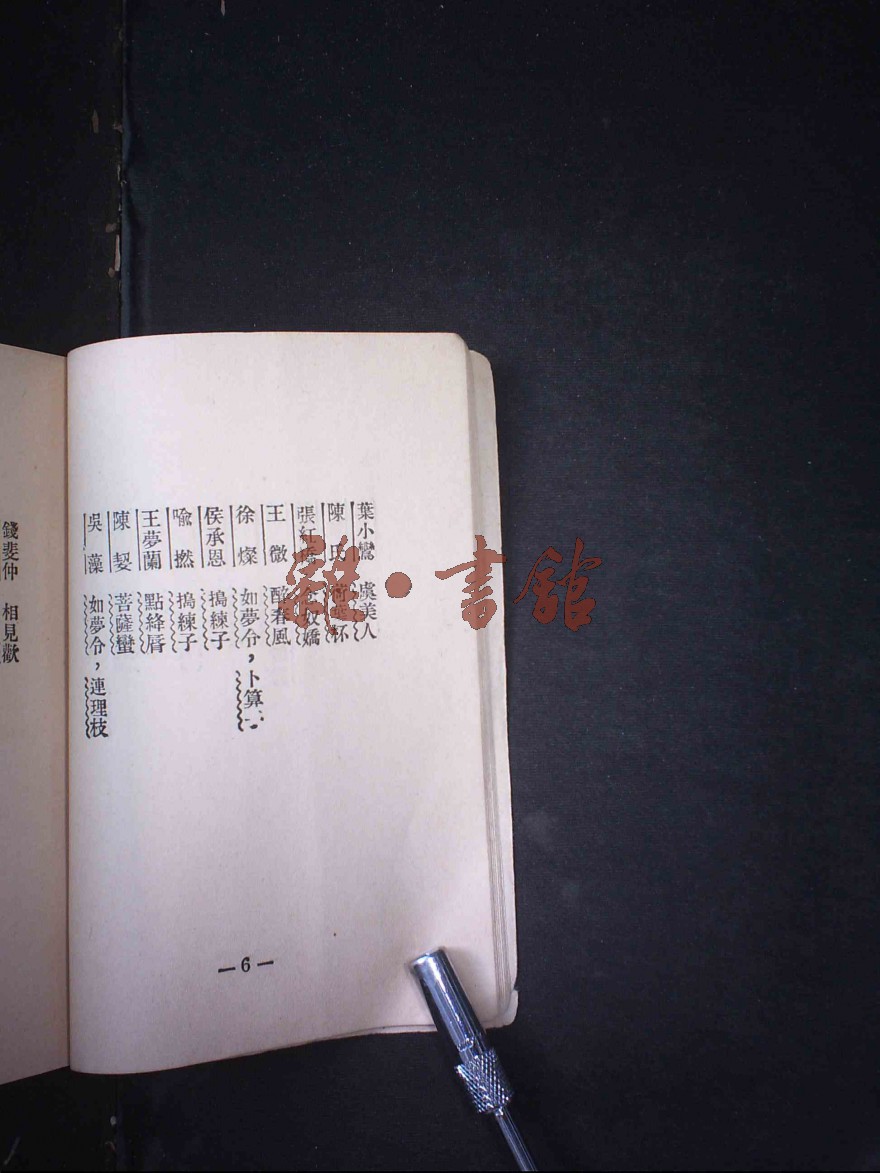 葉小鸞 虞美人
陳氏 荷葉杯
張紅橋 念奴嬌
王微 醉春風
徐燦 如夢令，卜算
侯承恩 搗練子
喩撚 搗練子
王夢蘭 點絳唇
陳契 菩薩蠻
吳藻 如夢令，連理枝
—6—
錢斐仲 相見歡
書館